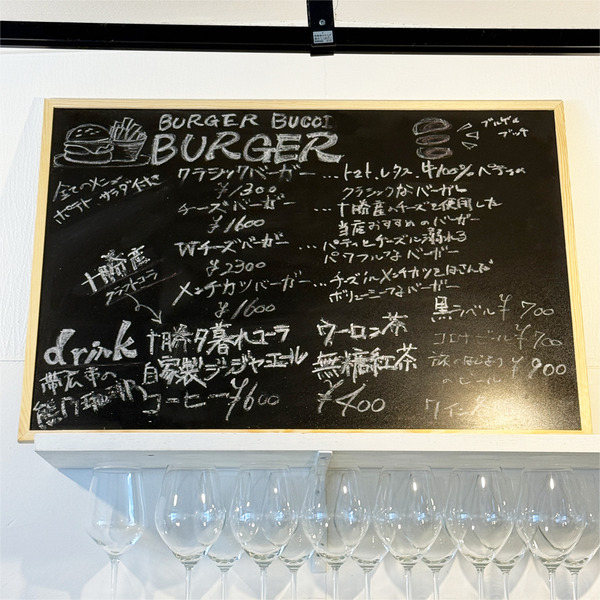 BURGER BUCCI
BURGER
ブルゲル
ブッチ
全てのメニュー
ポテト サラダ付き
クラシックバーガー…トマト、レタス、牛100%パティの
クラシックなバーガー
¥1300
チーズバーガー…十勝産のチーズを使用した
当店おすすめのバーガー
¥1600
Wチーズバーガー…パティとチーズに溺れる
パワフルなバーガー
¥2300
メンチカツバーガー…チーズinメンチカツをはさんだ
ボリューミーなバーガー
¥1600
十勝産
クラフトコーラ
drink
十勝夕暮れコーラ
自家製ジンジャエール
帯広市の
コーヒー ¥600
ウーロン茶
無糖紅茶
¥400
黒ラベル ¥700
コロナビール ¥700
旅のはじまり
のビール ¥900
ワイン